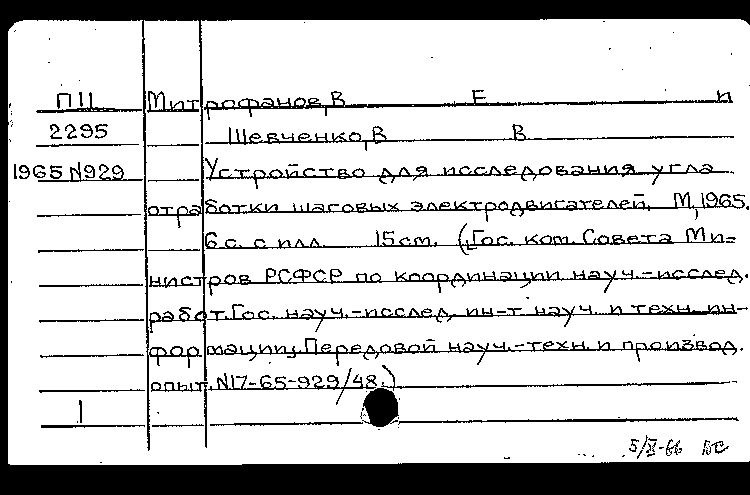 П11 Митрофанов, В Е и
2295 Шевченко, В В
1965 N929 Устройство для исследования угла
отработки шаговых электродвигателей. М, 1965.
6 с. с илл. 15 см. (Гос. ком. Совета Ми-
нистров РСФСР по координации науч.-исслед.
работ. Гос. науч.-исслед. ин-т науч. и техн. ин-
формации. Передовой науч.-техн. и производ.
опыт. N17-65-929/48.)
1
5/X-66